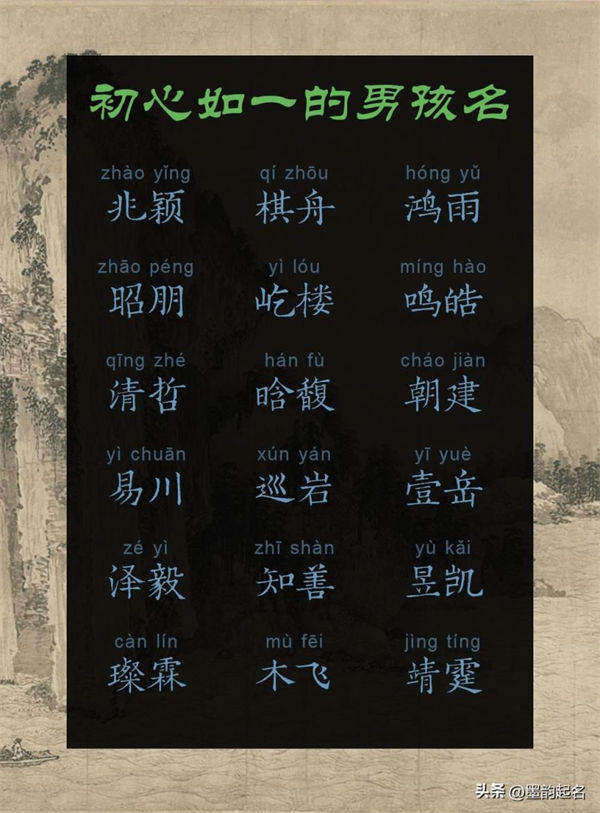 初心如一的男孩名
zhào yǐng qí zhōu hóng yǔ
兆颖 棋舟 鸿雨
zhāo péng yì lóu míng hào
昭朋 屹楼 鸣皓
qīng zhé hán fù cháo jiàn
清哲 晗馥 朝建
yì chuān xún yán yī yuè
易川 巡岩 壹岳
zé yì zhī shàn yù kǎi
泽毅 知善 昱凯
càn lín mù fēi jìng tíng
璨霖 木飞 靖霆
头条 @墨韵起名